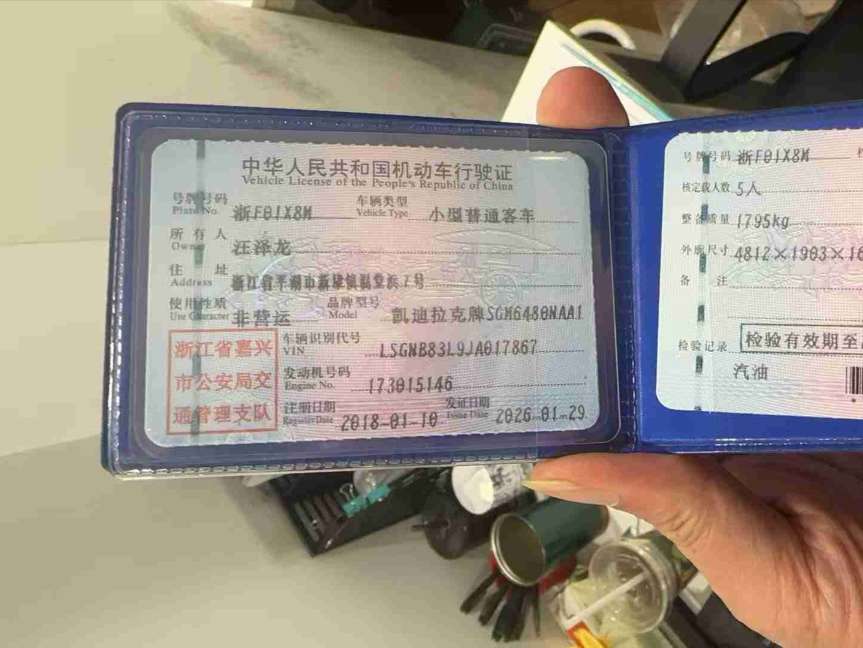 中华人民共和国机动车行驶证
Vehicle License of the People's Republic of China
号牌号码 浙F01X8M 车辆类型 小型普通客车
Plate No. Vehicle Type
所有人 汪泽龙
Owner
住址 浙江省平湖市新埭镇 7号
Address
使用性质 非营运 品牌型号 凯迪拉克牌SGM6480NAA1
Use Character Model
浙江省嘉兴
市公安局交
通管理支队
车辆识别代号 LSGNB83L9JA017867
VIN
发动机号码 173015146
Engine No.
注册日期 2018-01-10 发证日期 2026-01-29
Register Date Issue Date
号牌号码 浙F01X8M
核定载人数 5人
整备质量 1795kg
外廓尺寸 4812×1903×16
备注
检验记录 检验有效期至
汽油